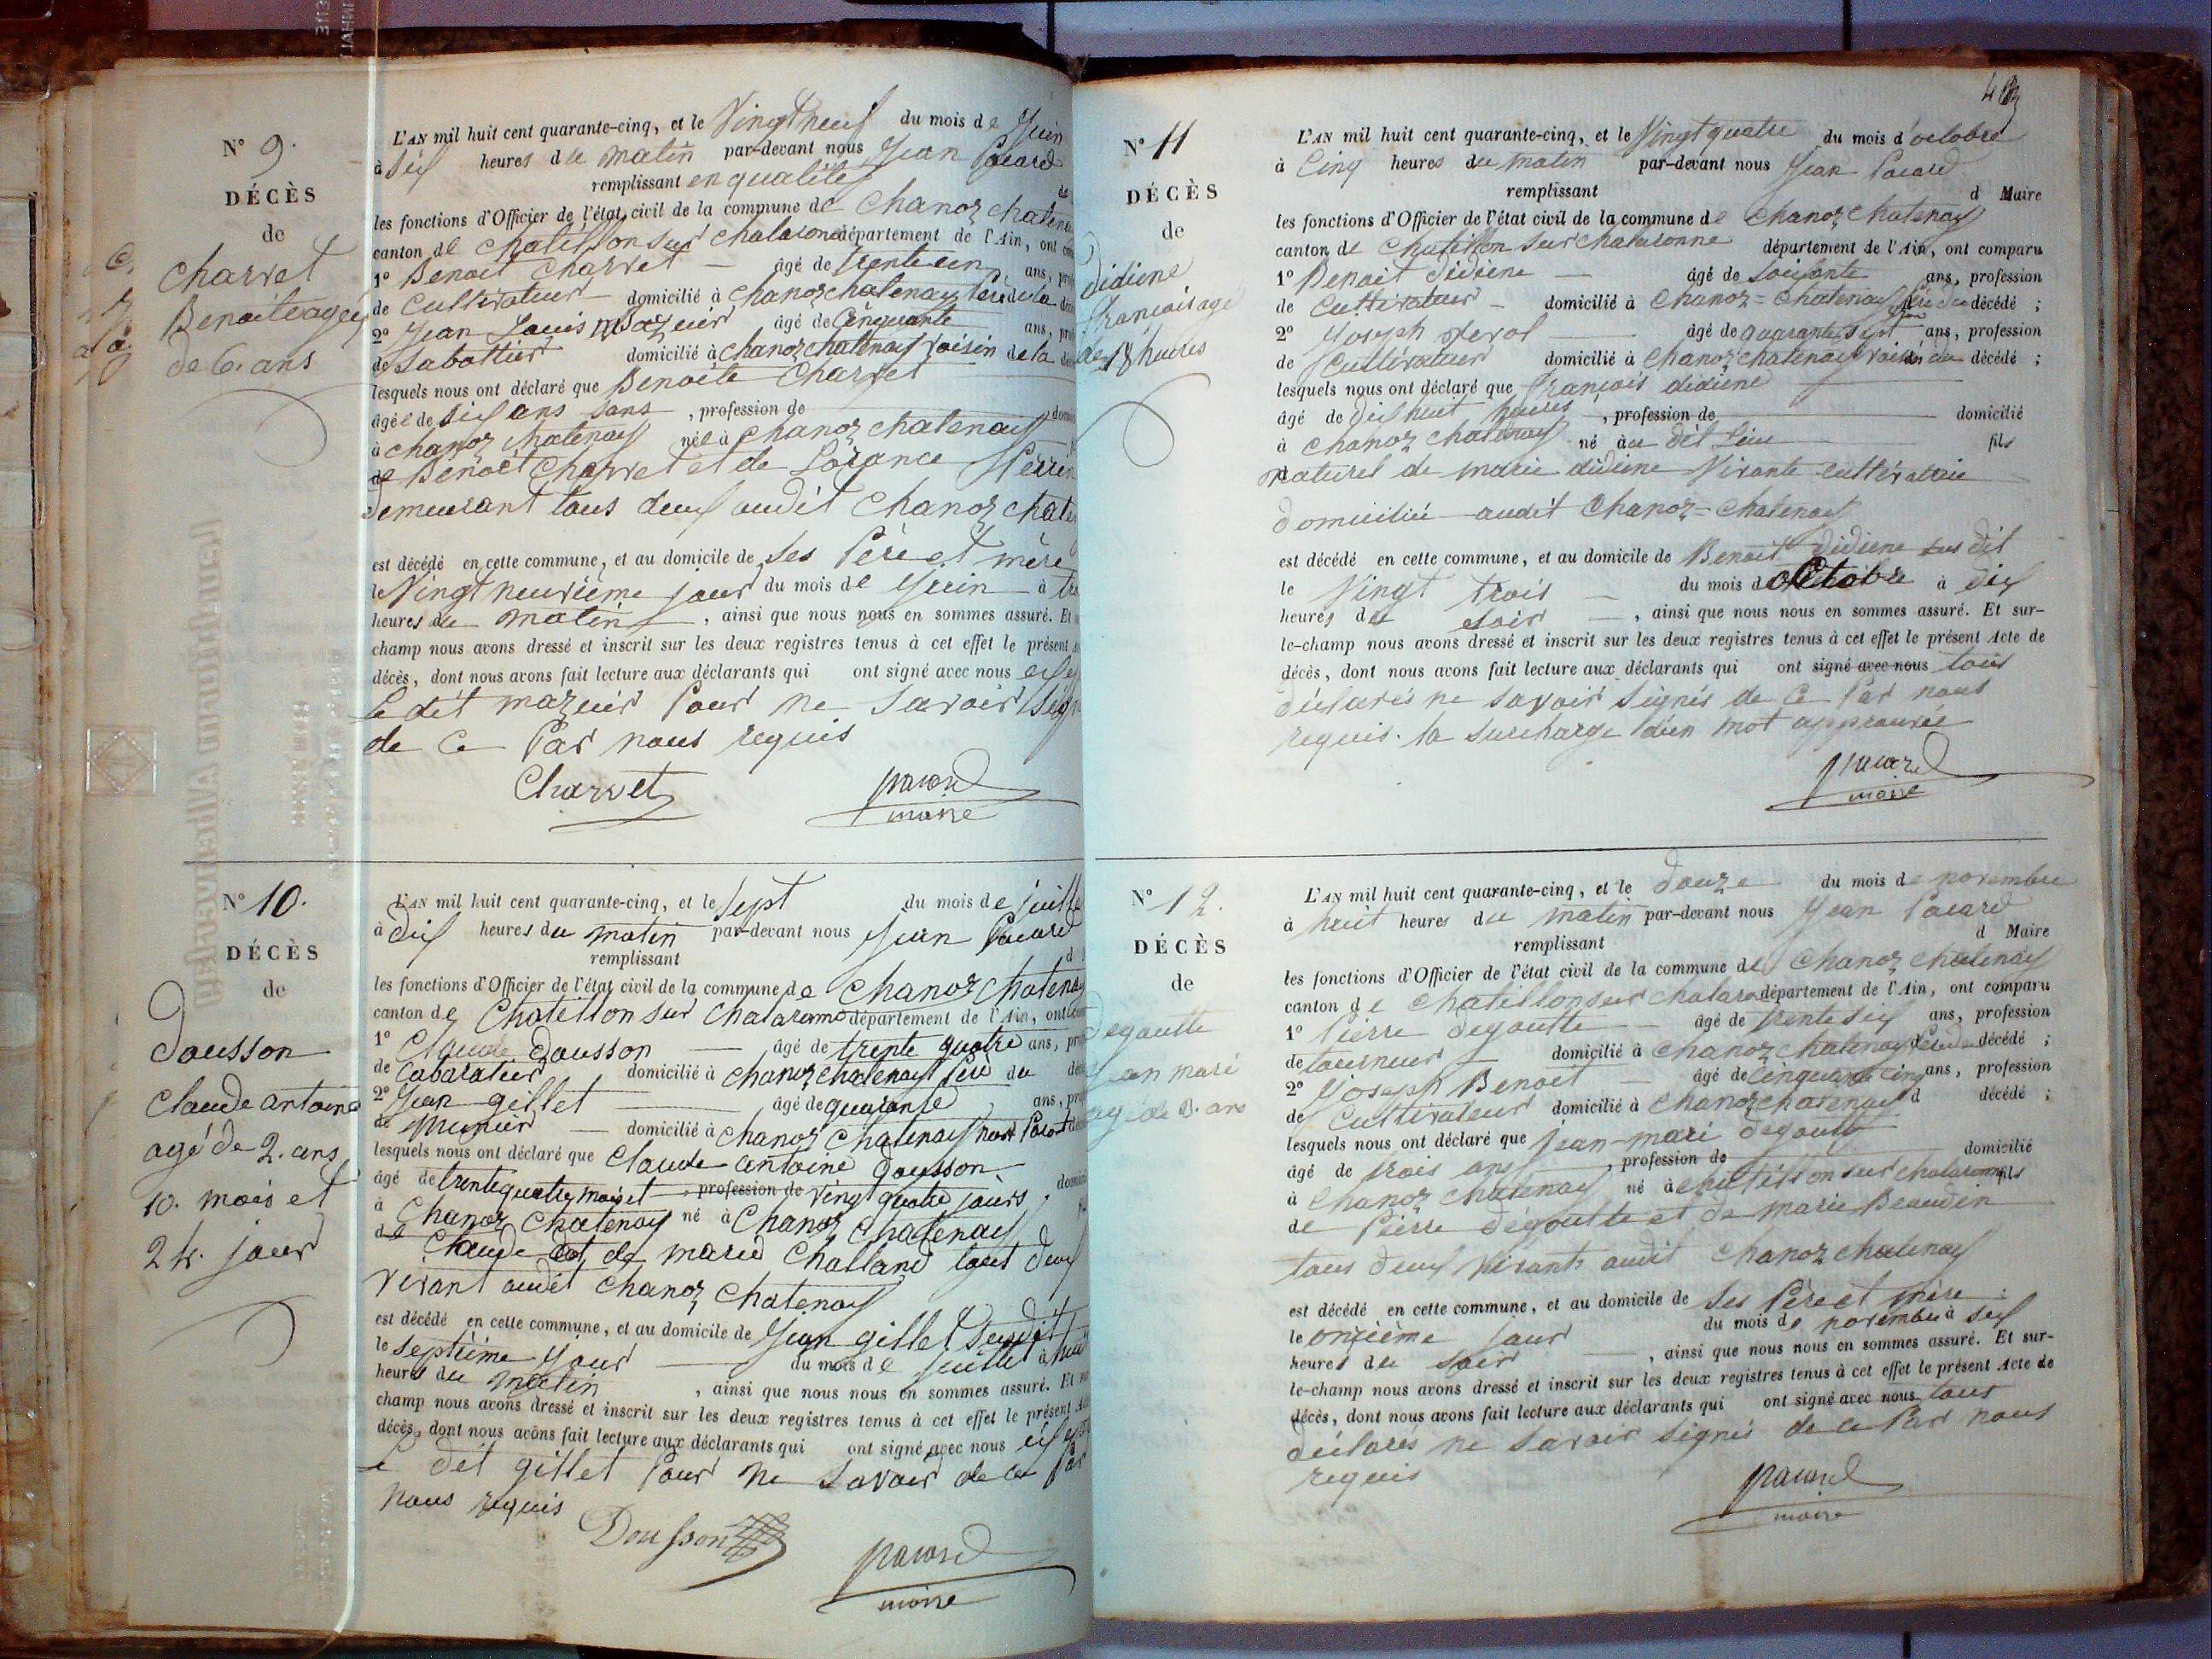 N° 9.
DÉCÈS
de
Charvet
Benoite agée
de 6. ans
L'AN mil huit cent quarante-cinq, et le Vingt neuf du mois de Juin
à Six heures du matin par-devant nous Jean Pacard
remplissant en qualité
les fonctions d'Officier de l'état civil de la commune de Chanoz chatena
canton de Chatillon sur chalaronne département de l'Ain, ont
1° Benoit Charvet — âgé de trente un ans,
de Cultivateur — domicilié à Chanoz chatenay Père de la
2° Jean Louis Mazuir âgé de Cinquante ans,
de Sabottier domicilié à chanoz chatenay voisin de la
lesquels nous ont déclaré que Benoite Charvet
âgée de six ans sans , profession de
à chanoz chatenay née à chanoz chatenay
de Benoit Charvet et de
demeurant tous deux audit Chanoz chate
est décédé en cette commune, et au domicile de Ses Père et mère
le Vingt neuvième jour du mois de Juin à
heures du matin , ainsi que nous nous en sommes assuré. Et
champ nous avons dressé et inscrit sur les deux registres tenus à cet effet le présent
décès, dont nous avons fait lecture aux déclarants qui ont signé avec nous
le dit mazuir Pour ne savoir
de ce Par nous requis
Charvet pacard
maire
N° 10.
DÉCÈS
de
Dousson
Claude antoine
agé de 2. ans
10. mois et
24. jour
L'AN mil huit cent quarante-cinq, et le Sept du mois de juille
à dix heures du matin par-devant nous Jean Pacard
remplissant
les fonctions d'Officier de l'état civil de la commune de Chanoz Chatenay
canton de Chatillon sur Chalaronne département de l'Ain, ont
1° Claude Dousson — âgé de trente quatre ans,
de Cabaratier domicilié à Chanoz chatenay Père du
2° Jean gillet — âgé de quarante ans,
de Munier — domicilié à Chanoz Chatenay non Parent
lesquels nous ont déclaré que Claude antoine Dousson
âgé de trente quatre mois et , profession de vingt quatre jours,
à Chanoz Chatenay né à Chanoz Chatenay
de Claude et de marie Challand tout deux
vivant audit Chanoz Chatenay
est décédé en cette commune, et au domicile de Jean gillet Susdit
le septième jour — du mois de juillet à
heures du matin , ainsi que nous nous en sommes assuré. Et
champ nous avons dressé et inscrit sur les deux registres tenus à cet effet le présent
décès, dont nous avons fait lecture aux déclarants qui ont signé avec nous
le dit gillet Pour ne savoir de ce Par
nous requis
Dousson
pacard
maire
N° 11
DÉCÈS
de
didiene
François agé
de 18 heures
L'AN mil huit cent quarante-cinq, et le Vingt quatre du mois d'octobre
à Cinq heures du matin par-devant nous Jean Pacard
remplissant d Maire
les fonctions d'Officier de l'état civil de la commune de Chanoz Chatenay
canton de Chatillon sur chalaronne département de l'Ain, ont comparu
1° Benoit didiene — âgé de soixante ans, profession
de Cultivateur — domicilié à Chanoz=Chatenay Père du décédé ;
2° Joseph — âgé de quarante sept ans, profession
de Cultivateur domicilié à Chanoz chatenay voisin du décédé ;
lesquels nous ont déclaré que François didiene
âgé de dix huit heures , profession de domicilié
à Chanoz Chatenay né au dit Lieu fils
naturel de marie didiene Vivante cultivatrice
domiciliée audit Chanoz=Chatenay
est décédé en cette commune, et au domicile de Benoit didiene sus dit
le Vingt trois — du mois d'Octobre à dix
heures du soir — , ainsi que nous nous en sommes assuré. Et sur-
le-champ nous avons dressé et inscrit sur les deux registres tenus à cet effet le présent Acte de
décès, dont nous avons fait lecture aux déclarants qui ont signé avec nous tous
déclarés ne savoir signés de ce Par nous
requis. la surcharge d'un mot approuvée
pacard
maire
N° 12.
DÉCÈS
de
degoutte
jean marie
agé de 3. ans
L'AN mil huit cent quarante-cinq, et le douze du mois de novembre
à huit heures du matin par-devant nous Jean Pacard
remplissant d Maire
les fonctions d'Officier de l'état civil de la commune de Chanoz Chatenay
canton de Chatillon sur Chalaro département de l'Ain, ont comparu
1° Pierre degoutte — âgé de trente six ans, profession
de tourneur — domicilié à Chanoz Chatenay Père du décédé ;
2° Joseph Benoit — âgé de Cinquante cinq ans, profession
de Cultivateur domicilié à Chanoz chatenay d décédé ;
lesquels nous ont déclaré que jean-marie degoutte
âgé de trois ans , profession de domicilié
à Chanoz Chatenay né à Chatillon sur chalaronne fils
de Pierre degoutte et de marie Beaudin
tous deux vivants audit Chanoz chatenay
est décédé en cette commune, et au domicile de Ses Père et mère :
le onzième jour du mois de novembre à six
heures du soir — , ainsi que nous nous en sommes assuré. Et sur-
le-champ nous avons dressé et inscrit sur les deux registres tenus à cet effet le présent Acte de
décès, dont nous avons fait lecture aux déclarants qui ont signé avec nous tous
déclarés ne savoir signés de ce Par nous
requis
pacard
maire